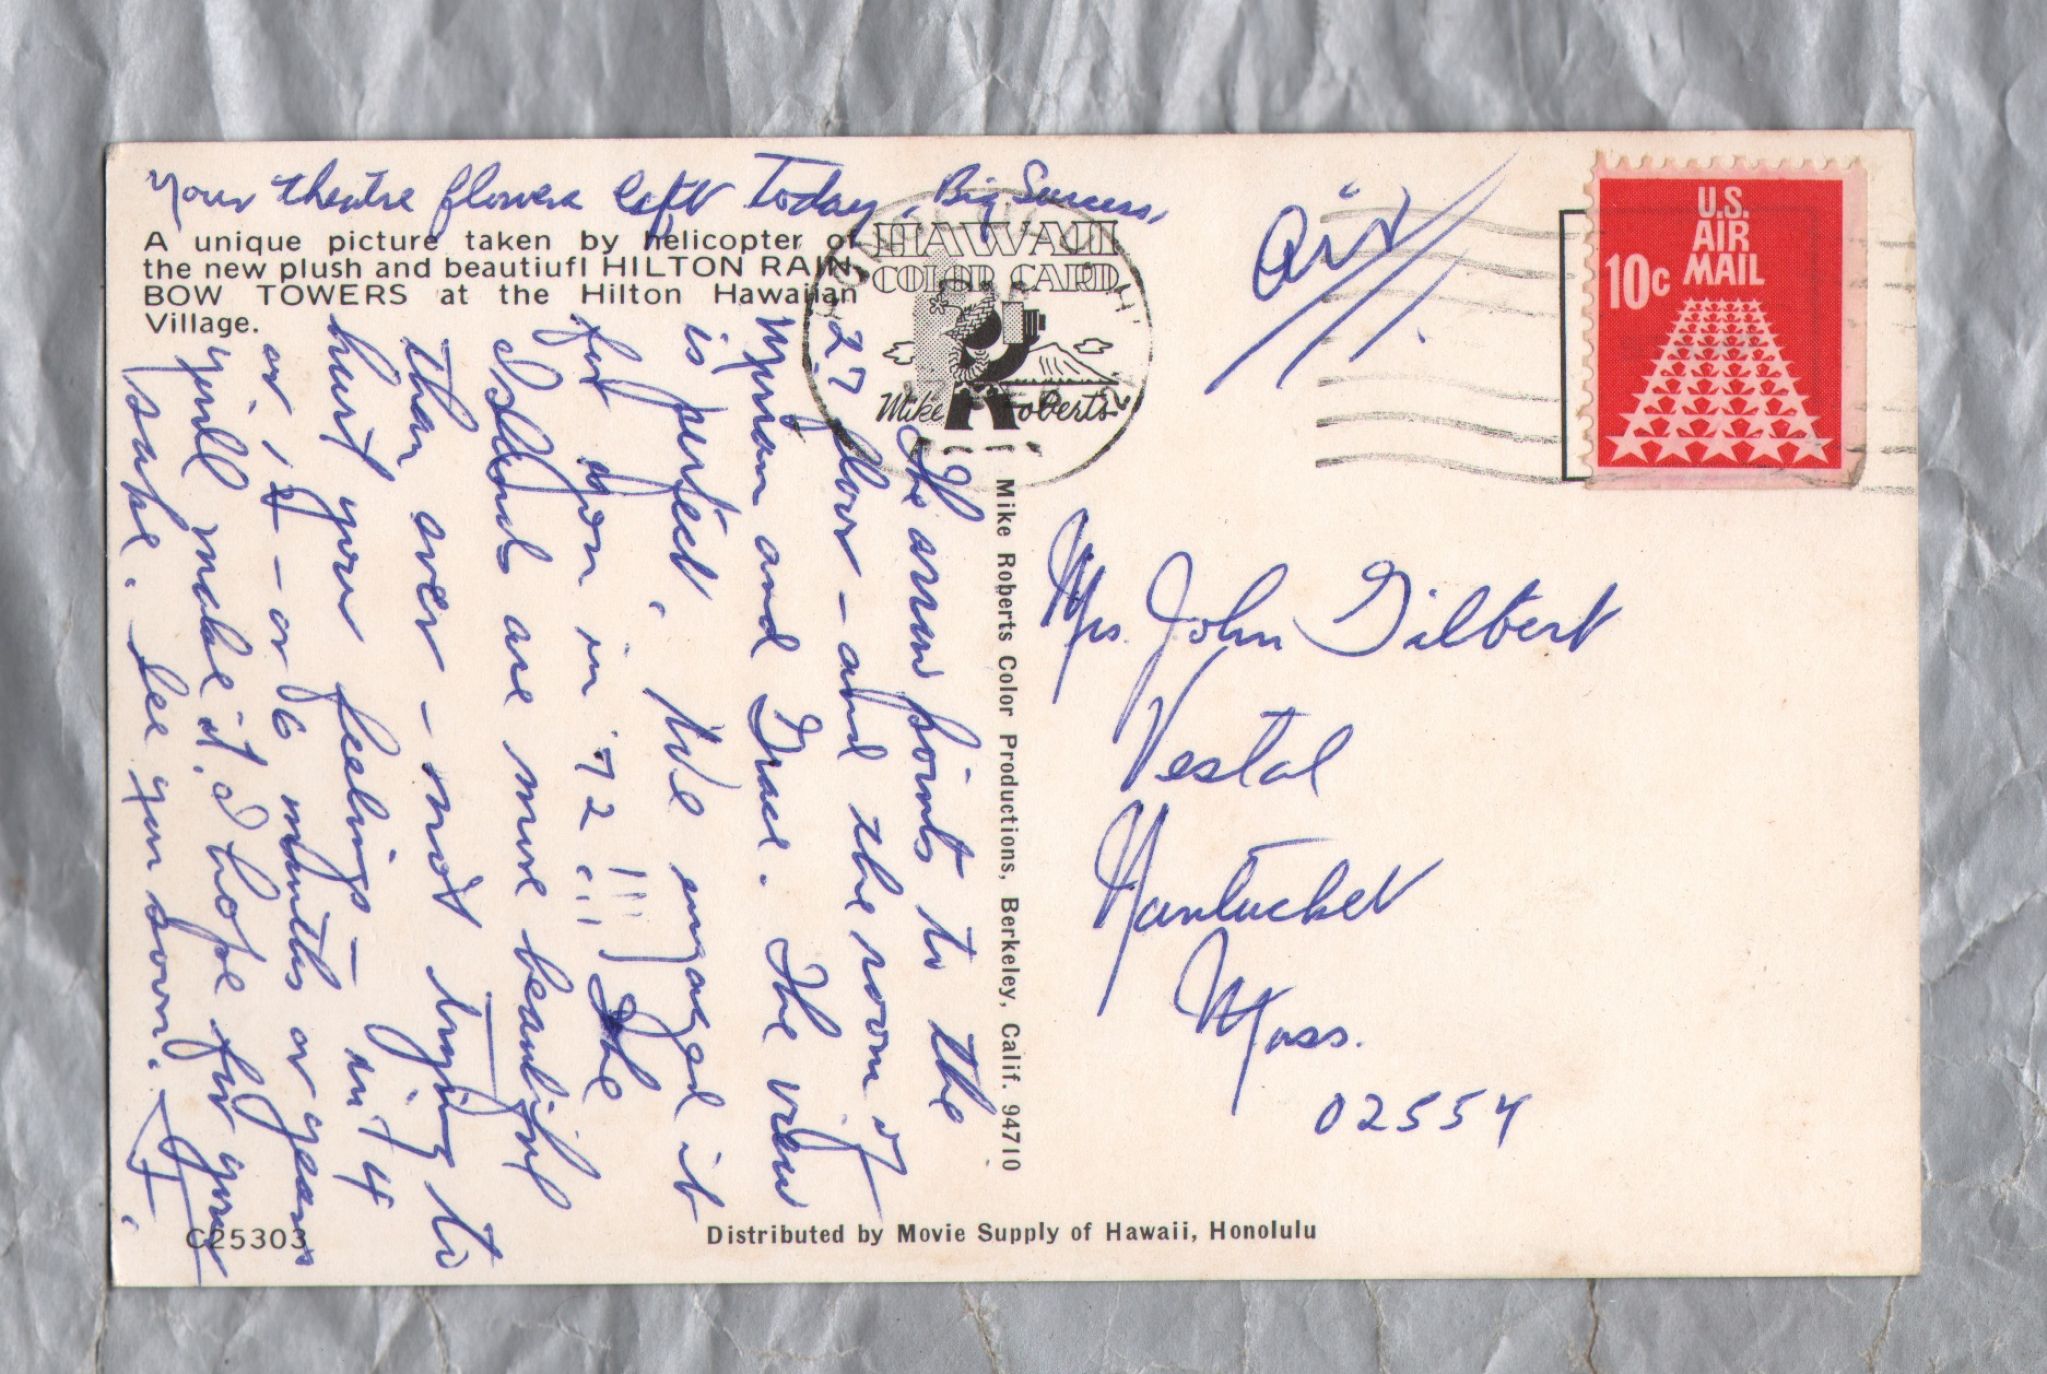 Your theatre flowers left Today. Big Success.
A unique picture taken by helicopter of
the new plush and beautiufl HILTON RAIN-
BOW TOWERS at the Hilton Hawaiian
Village.
HAWAII
COLOR CARD
Mike Roberts
The arrow points to the
27 floor - and the room of
Myran and Grace. The view
is perfect. We engaged it
for you in '72 !!! The
Islands are more beautiful
than ever - not trying to
hurt your feelings - in 4
or 5 - or 6 months or years
you'll make it. I hope for your
sake. See you soon.
Mike Roberts Color Productions, Berkeley, Calif. 94710
Air
U.S.
AIR
MAIL
10c
Mrs. John Gilbert
Vestal
Nantucket
Mass.
02554
C25303
Distributed by Movie Supply of Hawaii, Honolulu